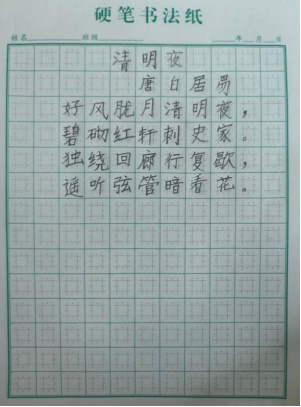 硬笔书法纸
姓名 班级 年 月 日
清明夜
唐 白居易
好风胧月清明夜，
碧砌红轩刺史家。
独绕回廊行复歇，
遥听弦管暗看花。